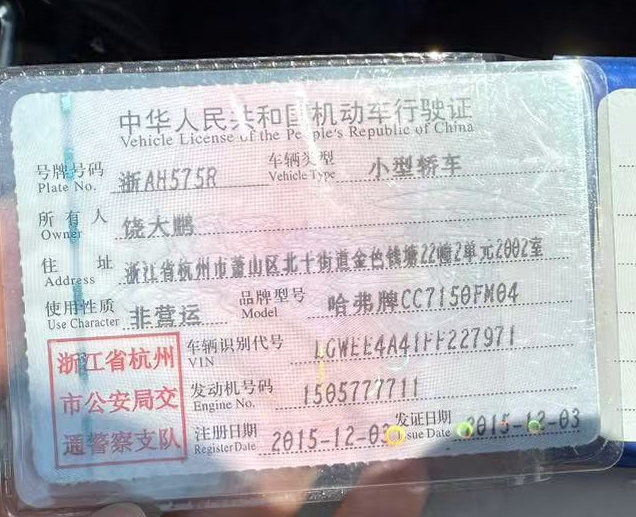 中华人民共和国机动车行驶证
Vehicle License of the People's Republic of China
号牌号码 Plate No. 浙AH575R 车辆类型 Vehicle Type 小型轿车
所有人 Owner 饶大鹏
住址 Address 浙江省杭州市萧山区北干街道金色钱塘22幢2单元2002室
使用性质 Use Character 非营运 品牌型号 Model 哈弗牌CC7150FM04
浙江省杭州市公安局交通警察支队
车辆识别代号 VIN LGWEE4A41FF227971
发动机号码 Engine No. 1505777711
注册日期 Register Date 2015-12-03 发证日期 Issue Date 2015-12-03